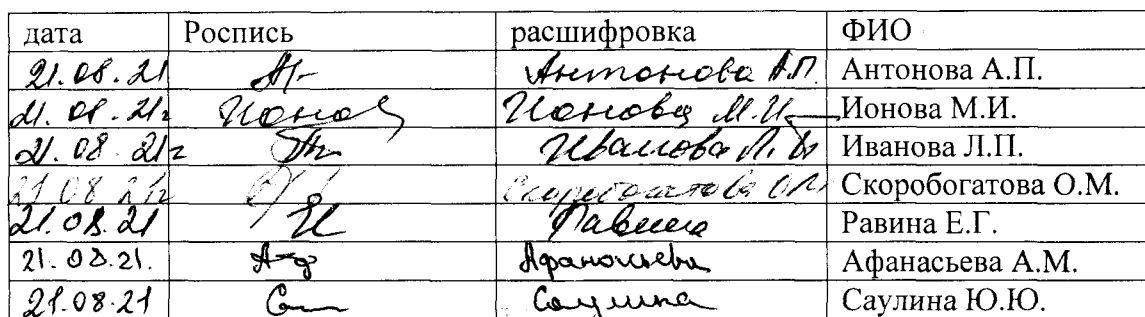 дата Роспись расшифровка ФИО
21.08.21 Антонова А.П. Антонова А.П.
21.08.21г Ионов Ионова М.И. Ионова М.И.
21.08.21г Иванова Л.П. Иванова Л.П.
21.08.21г Скоробогатова О.М. Скоробогатова О.М.
21.08.21 Равина Равина Е.Г.
21.08.21. Афанасьева Афанасьева А.М.
21.08.21 Саулина Саулина Ю.Ю.